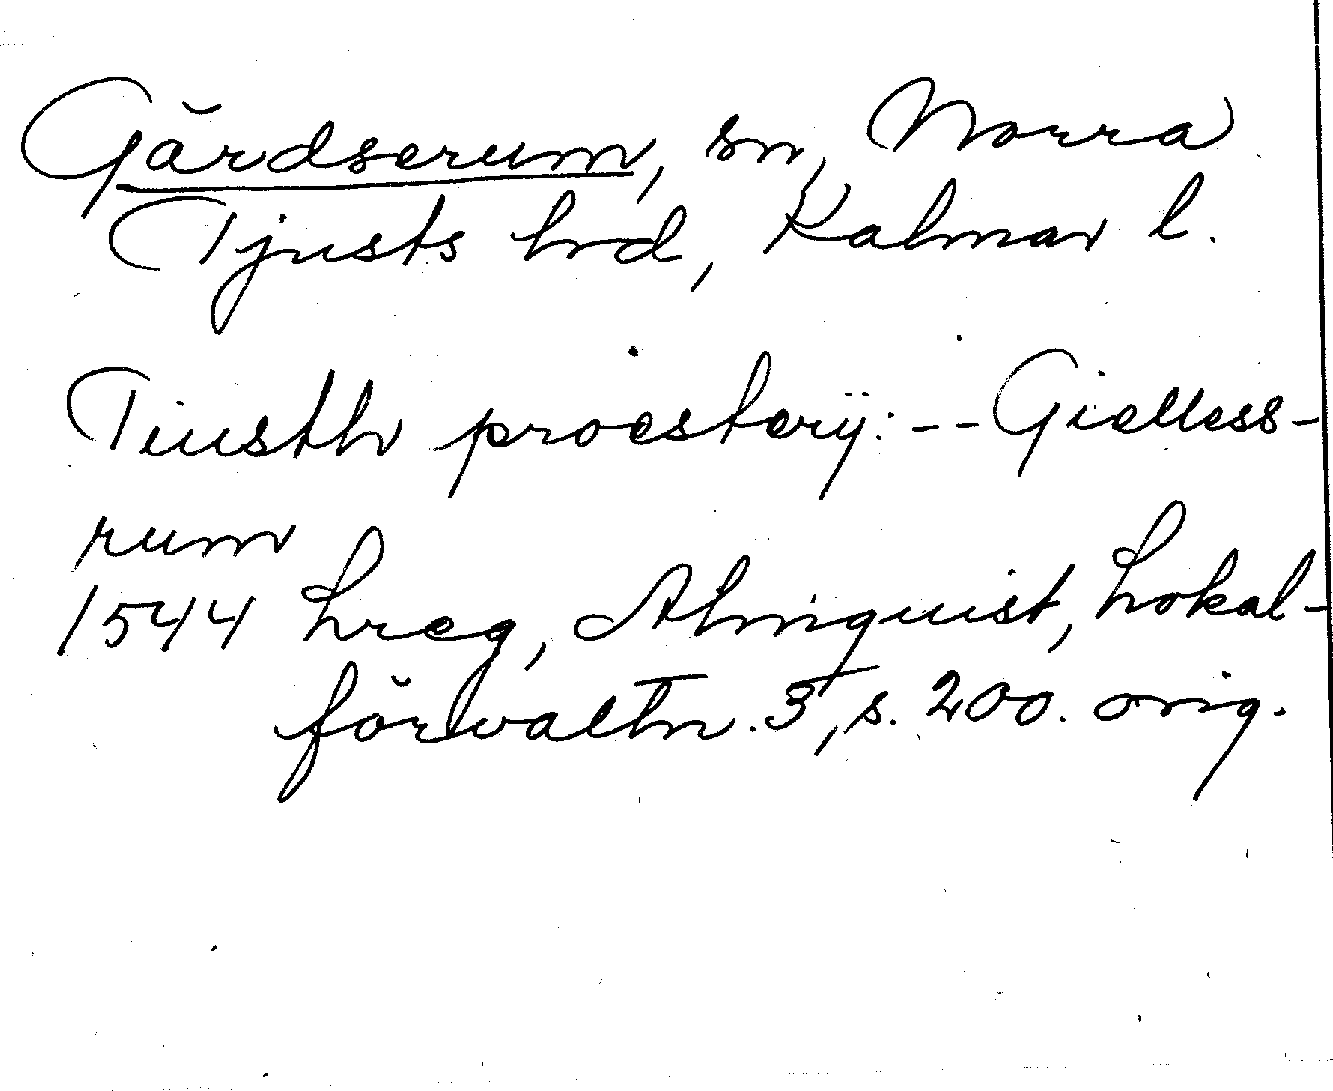 Gärdserum, sn, Norra
Tjusts hrd, Kalmar l.
Tiusth proestery: -- Gielless-
rum
1544 Lreg, Almquist, Lokal-
förvaltn. 3, s. 200. orig.